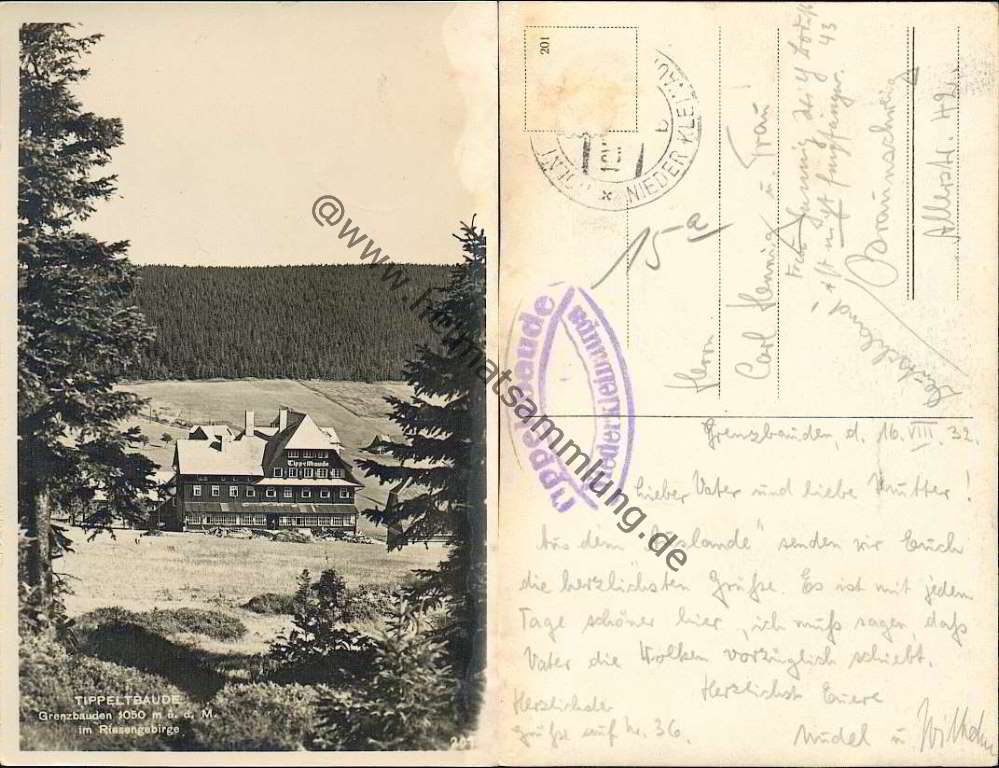 Tippeltbaude
TIPPELTBAUDE
Grenzbauden 1050 m ü. d. M.
im Riesengebirge
201
@www.heimatsammlung.de
201
NIEDER KLEINAUPA
Tippeltbaude
Nieder Kleinaupa
15 a
Herrn
Carl Hennig u. Frau
Braunschweig
Allerstr. 42
Deutschland
Grenzbauden, d. 16. VIII. 32.
Lieber Vater und liebe Mutter!
Aus dem "Auslande" senden wir Euch
die herzlichsten Grüße. Es ist mit jedem
Tage schöner hier, ich muß sagen, daß
Vater die Wolken vorzüglich schiebt.
Herzlichst Euere
Nudel u Wilhelm
Herzlichste
Grüße auf Nr. 36.